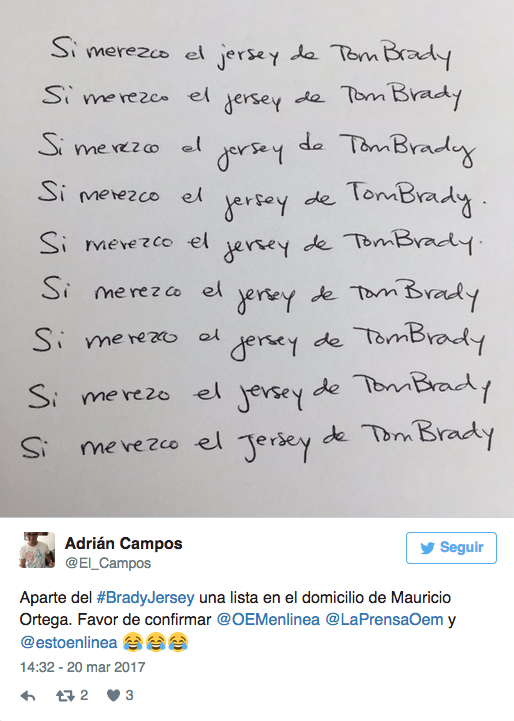 Si merezco el jersey de Tom Brady
Si merezco el jersey de Tom Brady
Si merezco el jersey de Tom Brady
Si merezco el jersey de Tom Brady.
Si merezco el jersey de Tom Brady.
Si merezco el jersey de Tom Brady
Si merezco el jersey de Tom Brady
Si merezo el jersey de Tom Brady
Si merezco el Jersey de Tom Brady
Adrián Campos
@El_Campos
Seguir
Aparte del #BradyJersey una lista en el domicilio de Mauricio
Ortega. Favor de confirmar @OEMenlinea @LaPrensaOem y
@estoenlinea 😂😂😂
14:32 - 20 mar 2017
2 3